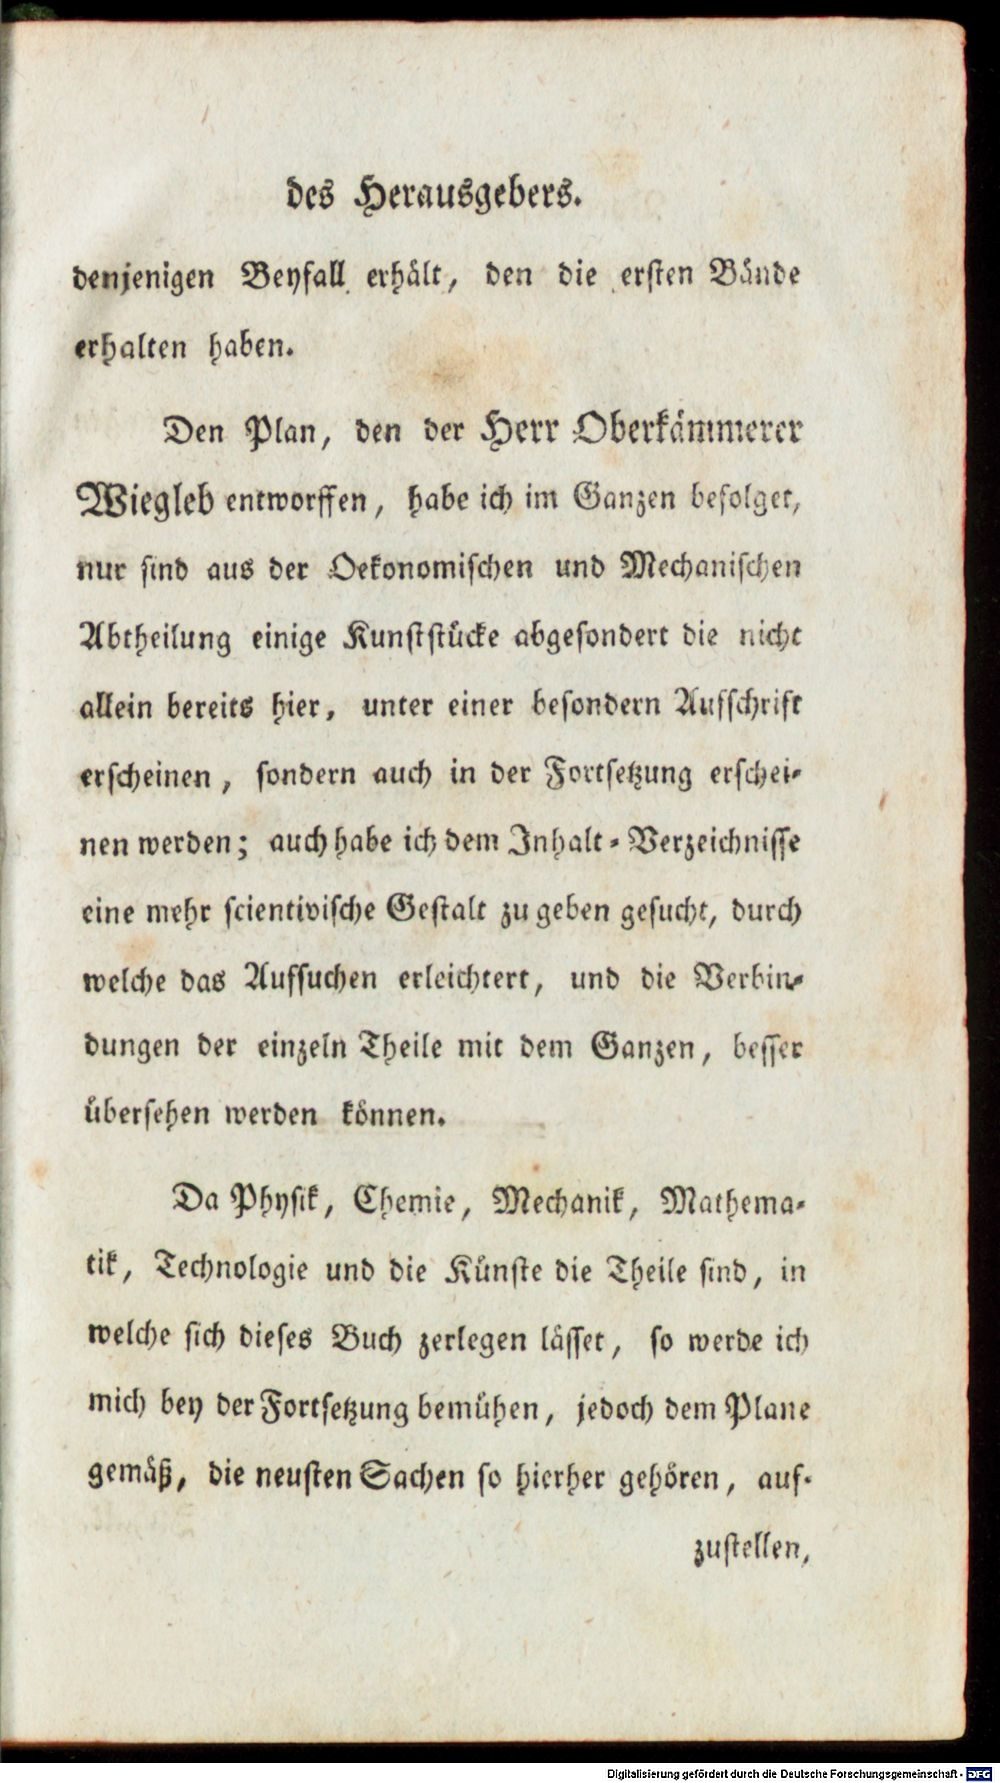 des Herausgebers.
denjenigen Beyfall erhält, den die ersten Bände
erhalten haben.
Den Plan, den der Herr Oberkämmerer
Wiegleb entworffen, habe ich im Ganzen befolget,
nur sind aus der Oekonomischen und Mechanischen
Abtheilung einige Kunststücke abgesondert die nicht
allein bereits hier, unter einer besondern Aufschrift
erscheinen, sondern auch in der Fortsetzung erschei-
nen werden; auch habe ich dem Inhalt-Verzeichnisse
eine mehr scientivische Gestalt zu geben gesucht, durch
welche das Aufsuchen erleichtert, und die Verbin-
dungen der einzeln Theile mit dem Ganzen, besser
übersehen werden können.
Da Physik, Chemie, Mechanik, Mathema-
tik, Technologie und die Künste die Theile sind, in
welche sich dieses Buch zerlegen lässet, so werde ich
mich bey der Fortsetzung bemühen, jedoch dem Plane
gemäß, die neusten Sachen so hierher gehören, auf-
zustellen,
Digitalisierung gefördert durch die Deutsche Forschungsgemeinschaft - DFG